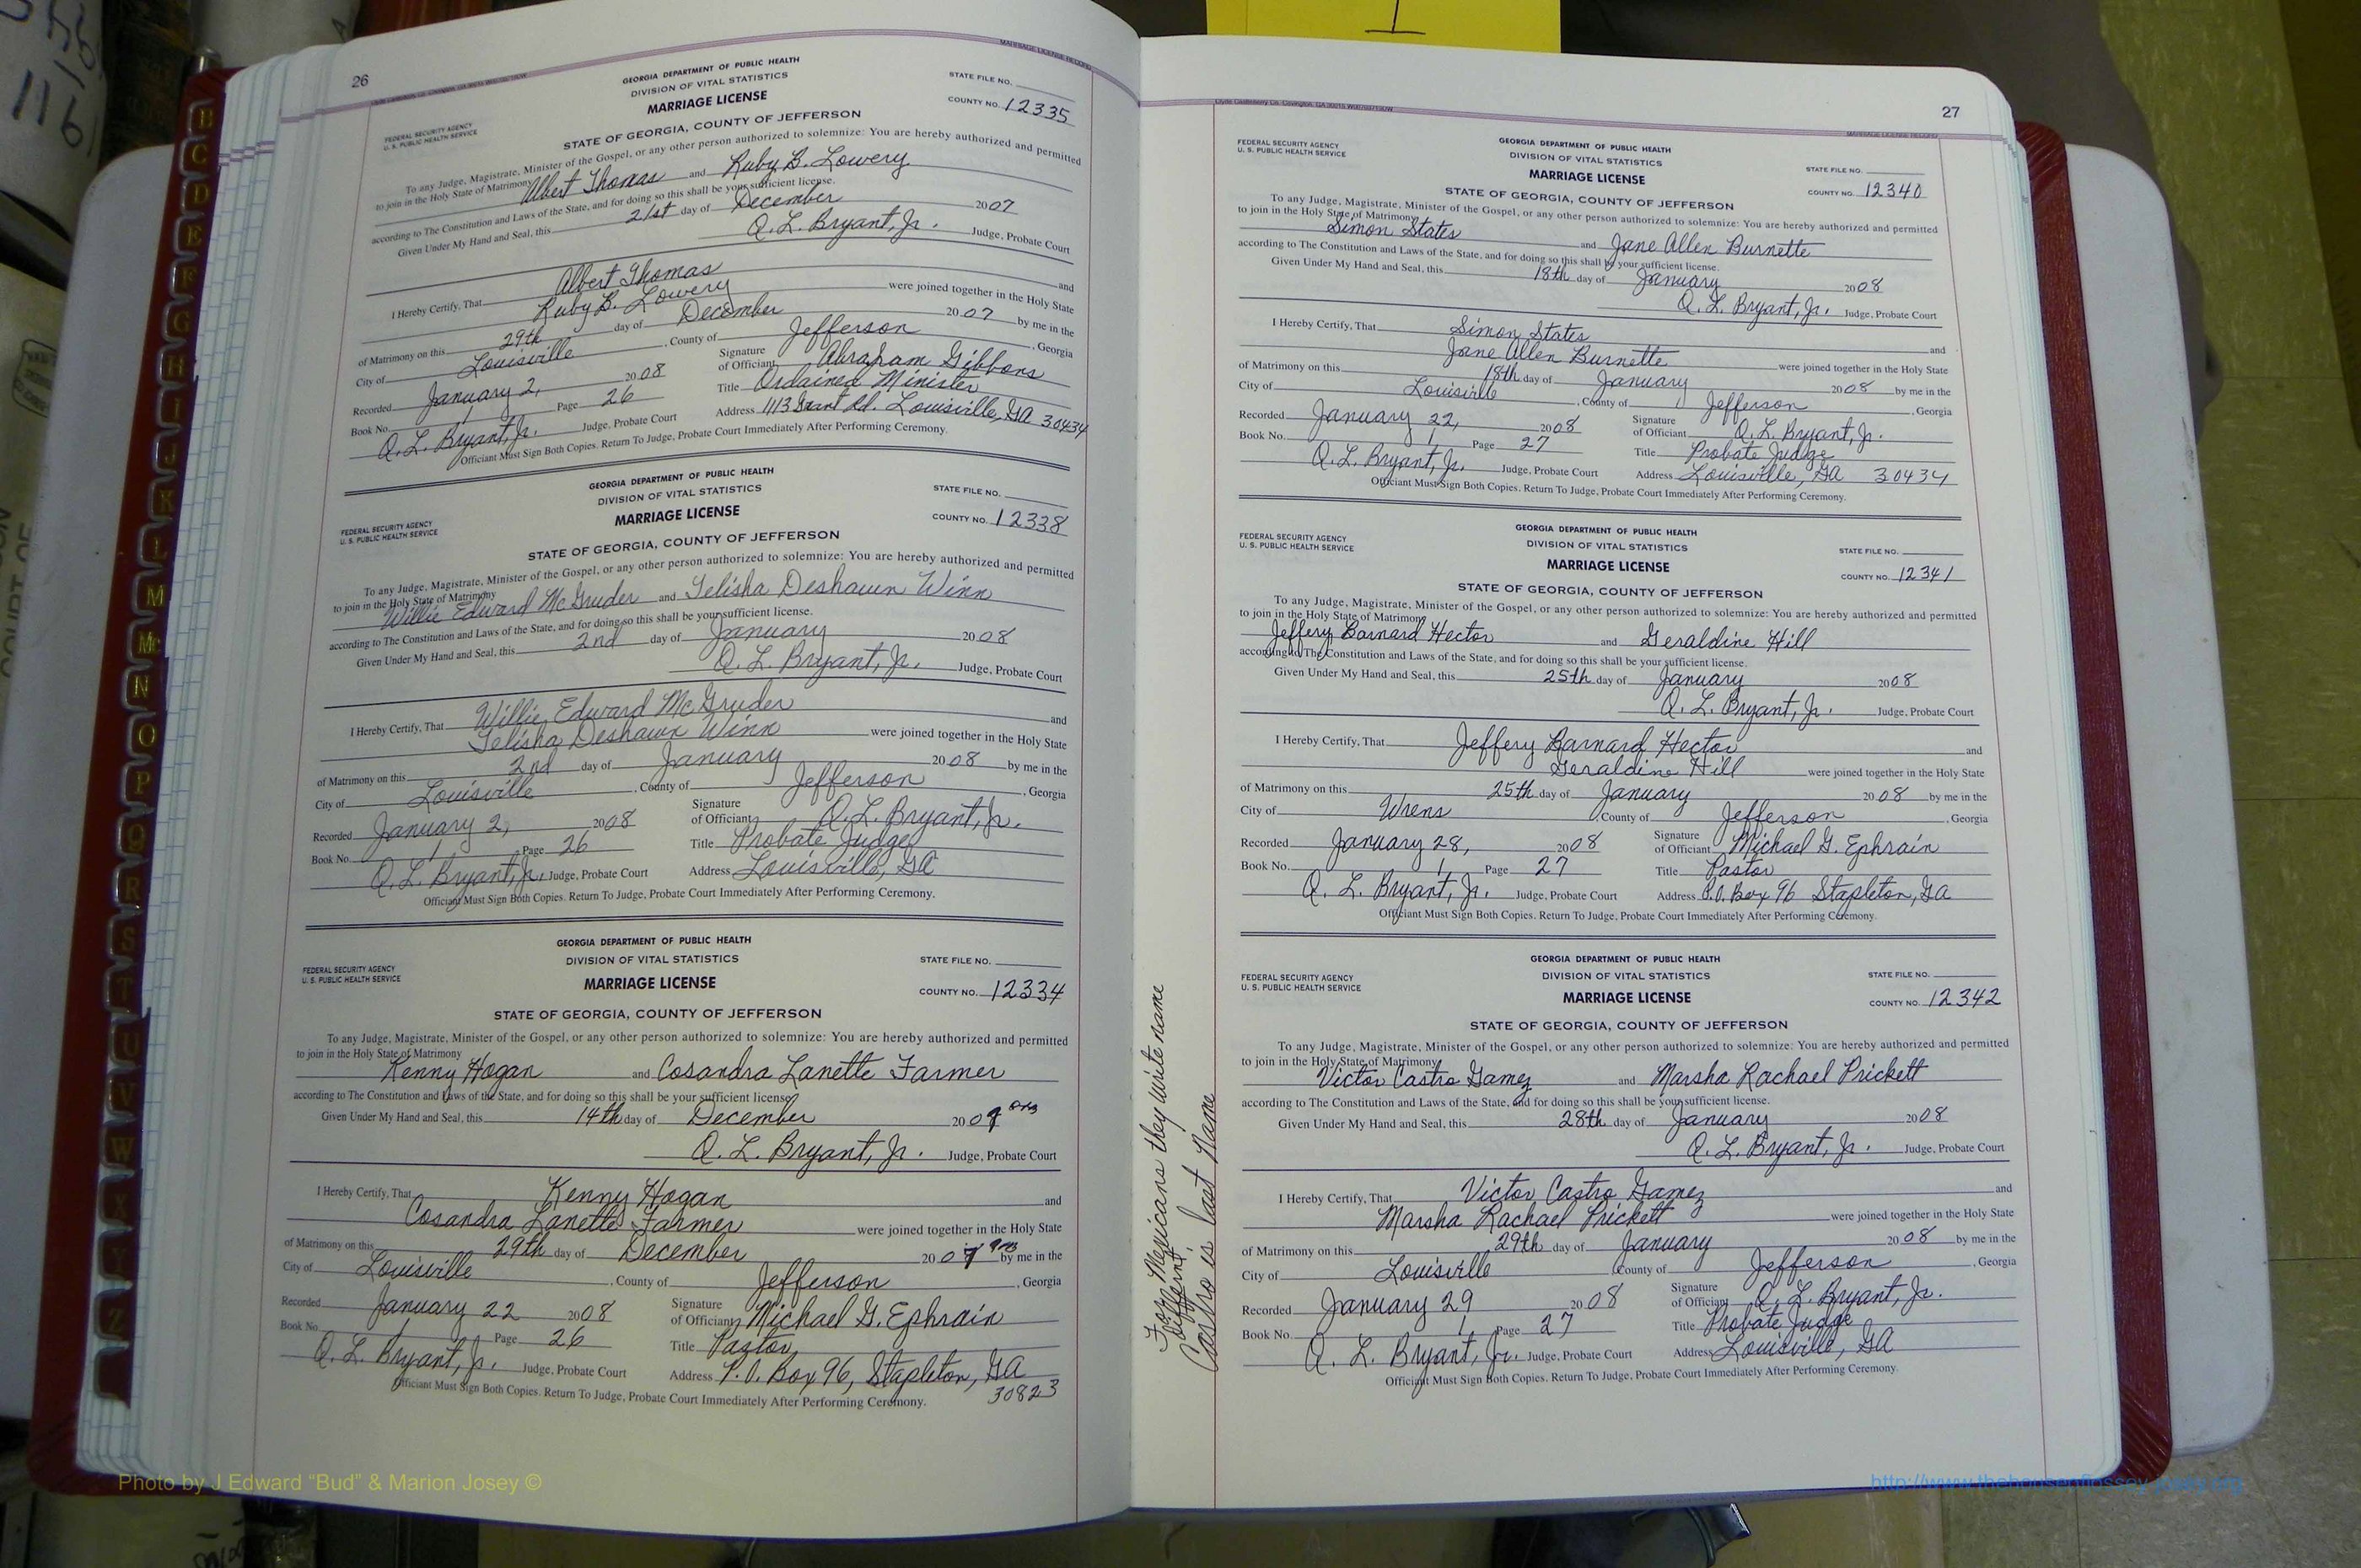 26
GEORGIA DEPARTMENT OF PUBLIC HEALTH
DIVISION OF VITAL STATISTICS
MARRIAGE LICENSE
STATE FILE NO.
COUNTY NO. 12335
FEDERAL SECURITY AGENCY
U. S. PUBLIC HEALTH SERVICE
STATE OF GEORGIA, COUNTY OF JEFFERSON
To any Judge, Magistrate, Minister of the Gospel, or any other person authorized to solemnize: You are hereby authorized and permitted
to join in the Holy State of Matrimony Albert Thomas and Ruby B. Lowery
according to The Constitution and Laws of the State, and for doing so this shall be your sufficient license.
Given Under My Hand and Seal, this 21st day of December 2007
Q. L. Bryant, Jr. Judge, Probate Court
I Hereby Certify, That Albert Thomas and
Ruby B. Lowery were joined together in the Holy State
of Matrimony on this 29th day of December 2007 by me in the
City of Louisville, County of Jefferson, Georgia
Recorded January 2, 2008 Signature of Officiant Abraham Gibbons
Book No. 1 Page 26 Title Ordained Minister
Q. L. Bryant, Jr. Judge, Probate Court Address 1113 Grant Rd. Louisville, GA 30434
Officiant Must Sign Both Copies. Return To Judge, Probate Court Immediately After Performing Ceremony.
GEORGIA DEPARTMENT OF PUBLIC HEALTH
DIVISION OF VITAL STATISTICS
MARRIAGE LICENSE
STATE FILE NO.
COUNTY NO. 12338
FEDERAL SECURITY AGENCY
U. S. PUBLIC HEALTH SERVICE
STATE OF GEORGIA, COUNTY OF JEFFERSON
To any Judge, Magistrate, Minister of the Gospel, or any other person authorized to solemnize: You are hereby authorized and permitted
to join in the Holy State of Matrimony
Willie Edward McGruder and Telisha Deshawn Winn
according to The Constitution and Laws of the State, and for doing so this shall be your sufficient license.
Given Under My Hand and Seal, this 2nd day of January 2008
Q. L. Bryant, Jr. Judge, Probate Court
I Hereby Certify, That Willie Edward McGruder and
Telisha Deshawn Winn were joined together in the Holy State
of Matrimony on this 2nd day of January 2008 by me in the
City of Louisville, County of Jefferson, Georgia
Recorded January 2, 2008 Signature of Officiant Q. L. Bryant, Jr.
Book No. 1 Page 26 Title Probate Judge
Q. L. Bryant, Jr. Judge, Probate Court Address Louisville, GA
Officiant Must Sign Both Copies. Return To Judge, Probate Court Immediately After Performing Ceremony.
GEORGIA DEPARTMENT OF PUBLIC HEALTH
DIVISION OF VITAL STATISTICS
MARRIAGE LICENSE
STATE FILE NO.
COUNTY NO. 12334
FEDERAL SECURITY AGENCY
U. S. PUBLIC HEALTH SERVICE
STATE OF GEORGIA, COUNTY OF JEFFERSON
To any Judge, Magistrate, Minister of the Gospel, or any other person authorized to solemnize: You are hereby authorized and permitted
to join in the Holy State of Matrimony
Kenny Hogan and Cosandra Lanette Farmer
according to The Constitution and Laws of the State, and for doing so this shall be your sufficient license.
Given Under My Hand and Seal, this 14th day of December 2007
Q. L. Bryant, Jr. Judge, Probate Court
I Hereby Certify, That Kenny Hogan and
Cosandra Lanette Farmer were joined together in the Holy State
of Matrimony on this 29th day of December 2007 by me in the
City of Louisville, County of Jefferson, Georgia
Recorded January 22 2008 Signature of Officiant Michael G. Ephrain
Book No. 1 Page 26 Title Pastor
Q. L. Bryant, Jr. Judge, Probate Court Address P.O. Box 96, Stapleton, GA
30823
Officiant Must Sign Both Copies. Return To Judge, Probate Court Immediately After Performing Ceremony.
1
27
GEORGIA DEPARTMENT OF PUBLIC HEALTH
DIVISION OF VITAL STATISTICS
MARRIAGE LICENSE
STATE FILE NO.
COUNTY NO. 12340
FEDERAL SECURITY AGENCY
U. S. PUBLIC HEALTH SERVICE
STATE OF GEORGIA, COUNTY OF JEFFERSON
To any Judge, Magistrate, Minister of the Gospel, or any other person authorized to solemnize: You are hereby authorized and permitted
to join in the Holy State of Matrimony
Simon States and Jane Allen Burnette
according to The Constitution and Laws of the State, and for doing so this shall be your sufficient license.
Given Under My Hand and Seal, this 18th day of January 2008
Q. L. Bryant, Jr. Judge, Probate Court
I Hereby Certify, That Simon States and
Jane Allen Burnette were joined together in the Holy State
of Matrimony on this 18th day of January 2008 by me in the
City of Louisville, County of Jefferson, Georgia
Recorded January 22, 2008 Signature of Officiant Q. L. Bryant, Jr.
Book No. 1 Page 27 Title Probate Judge
Q. L. Bryant, Jr. Judge, Probate Court Address Louisville, GA 30434
Officiant Must Sign Both Copies. Return To Judge, Probate Court Immediately After Performing Ceremony.
GEORGIA DEPARTMENT OF PUBLIC HEALTH
DIVISION OF VITAL STATISTICS
MARRIAGE LICENSE
STATE FILE NO.
COUNTY NO. 12341
FEDERAL SECURITY AGENCY
U. S. PUBLIC HEALTH SERVICE
STATE OF GEORGIA, COUNTY OF JEFFERSON
To any Judge, Magistrate, Minister of the Gospel, or any other person authorized to solemnize: You are hereby authorized and permitted
to join in the Holy State of Matrimony
Jeffery Barnard Hector and Geraldine Hill
according to The Constitution and Laws of the State, and for doing so this shall be your sufficient license.
Given Under My Hand and Seal, this 25th day of January 2008
Q. L. Bryant, Jr. Judge, Probate Court
I Hereby Certify, That Jeffery Barnard Hector and
Geraldine Hill were joined together in the Holy State
of Matrimony on this 25th day of January 2008 by me in the
City of Wrens County of Jefferson, Georgia
Recorded January 28, 2008 Signature of Officiant Michael G. Ephrain
Book No. 1 Page 27 Title Pastor
Q. L. Bryant, Jr. Judge, Probate Court Address P.O. Box 96 Stapleton, GA
Officiant Must Sign Both Copies. Return To Judge, Probate Court Immediately After Performing Ceremony.
GEORGIA DEPARTMENT OF PUBLIC HEALTH
DIVISION OF VITAL STATISTICS
MARRIAGE LICENSE
STATE FILE NO.
COUNTY NO. 12342
FEDERAL SECURITY AGENCY
U. S. PUBLIC HEALTH SERVICE
STATE OF GEORGIA, COUNTY OF JEFFERSON
To any Judge, Magistrate, Minister of the Gospel, or any other person authorized to solemnize: You are hereby authorized and permitted
to join in the Holy State of Matrimony
Victor Castro Gamez and Marsha Rachael Prickett
according to The Constitution and Laws of the State, and for doing so this shall be your sufficient license.
Given Under My Hand and Seal, this 28th day of January 2008
Q. L. Bryant, Jr. Judge, Probate Court
I Hereby Certify, That Victor Castro Gamez and
Marsha Rachael Prickett were joined together in the Holy State
of Matrimony on this 29th day of January 2008 by me in the
City of Louisville County of Jefferson, Georgia
Recorded January 29 2008 Signature of Officiant Q. L. Bryant, Jr.
Book No. 1 Page 27 Title Probate Judge
Q. L. Bryant, Jr. Judge, Probate Court Address Louisville, GA
Officiant Must Sign Both Copies. Return To Judge, Probate Court Immediately After Performing Ceremony.
Mexicans they write name
Castro is last Name
B
C
D
E
F
G
H
I
J
K
L
M
Mc
N
O
P
Q
R
S
T
U
V
W
X
Y
Z
Photo by J Edward “Bud” & Marion Josey ©